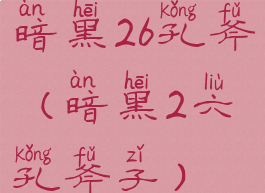 àn hēi kǒng fǔ
暗黑26孔斧
àn hēi liù
(暗黑2六
kǒng fǔ zǐ
孔斧子)